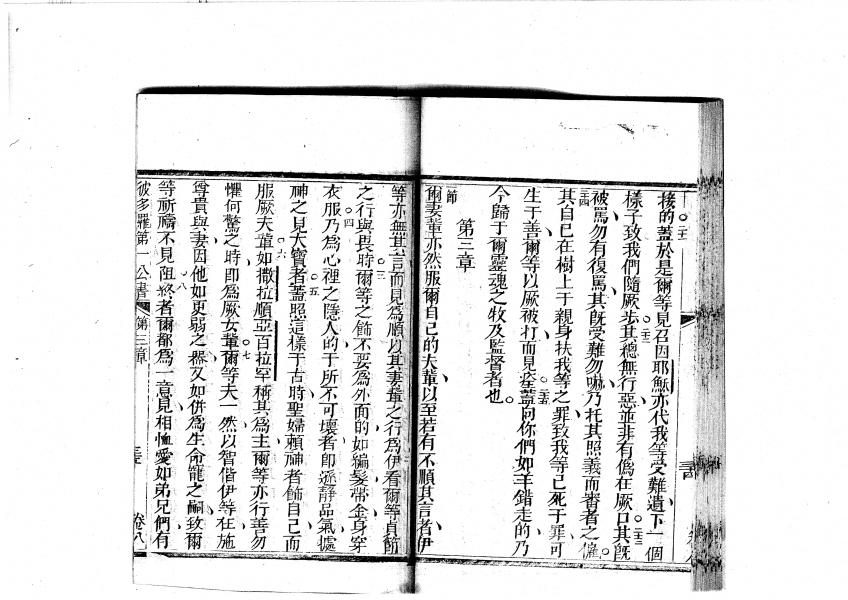 接的蓋於是爾等見召因耶穌亦代我等受難遺下一個
樣子致我們隨厥步其總無行惡並非有僞在厥口其旣
被罵勿有復罵其旣受難勿嚇乃托其照義而審者之僱
其自己在樹上于親身扶我等之罪致我等已死于罪可
生于善爾等以厥被打而見痊蓋向你們如羊錯走的乃
今歸于爾靈魂之牧及監督者也
第三章
節
爾妻輩亦然服爾自己的夫輩以至若有不順其言者伊
等亦無其言而見爲順以其妻輩之行爲伊看爾等貞節
之行與畏時爾等之飾不要爲外面的如編髮帶金身穿
衣服乃爲心裡之隱人的于所不可壞者卽遜靜品氣處
神之見大寶者蓋照這樣于古時聖婦賴神者飾自己而
服厥夫輩如撒拉順亞百拉罕稱其爲主爾等亦行善勿
懼何驚之時卽爲厥女輩爾等夫一然以智偕伊等在施
尊貴與妻因他如更弱之器又如併爲生命寵之嗣致爾
等祈禱不見阻終者爾都爲一意見相恤愛如弟兄們有
彼多羅第一公書 第三章 卷八